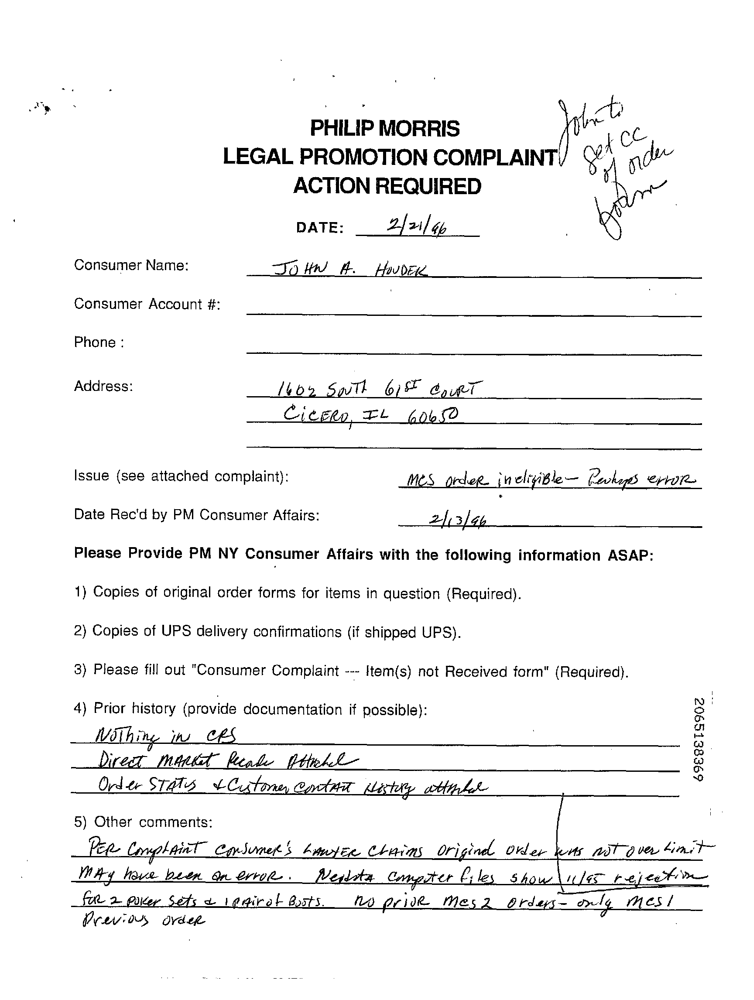 John to
get cc
of order
form
PHILIP MORRIS
LEGAL PROMOTION COMPLAINT
ACTION REQUIRED
DATE: 2/21/96
Consumer Name: JOHN A. HOUDEK
Consumer Account #:
Phone :
Address: 1602 SOUTH 61ST COURT
CICERO, IL 60650
Issue (see attached complaint): MCS order ineligible - Perhaps error
Date Rec'd by PM Consumer Affairs: 2/13/96
Please Provide PM NY Consumer Affairs with the following information ASAP:
1) Copies of original order forms for items in question (Required).
2) Copies of UPS delivery confirmations (if shipped UPS).
3) Please fill out "Consumer Complaint --- Item(s) not Received form" (Required).
4) Prior history (provide documentation if possible):
Nothing in CRS
Direct MARKET Attached
Order STATUS & Customer Contact History attached
5) Other comments:
PER Complaint Consumer's LAWYER Claims original order was not over limit
MAy have been an error. computer files show 11/95 rejection
for 2 poker sets & 1 pair of Boots. no prior MCS 2 orders - only MCS 1
Previous order
2065138369